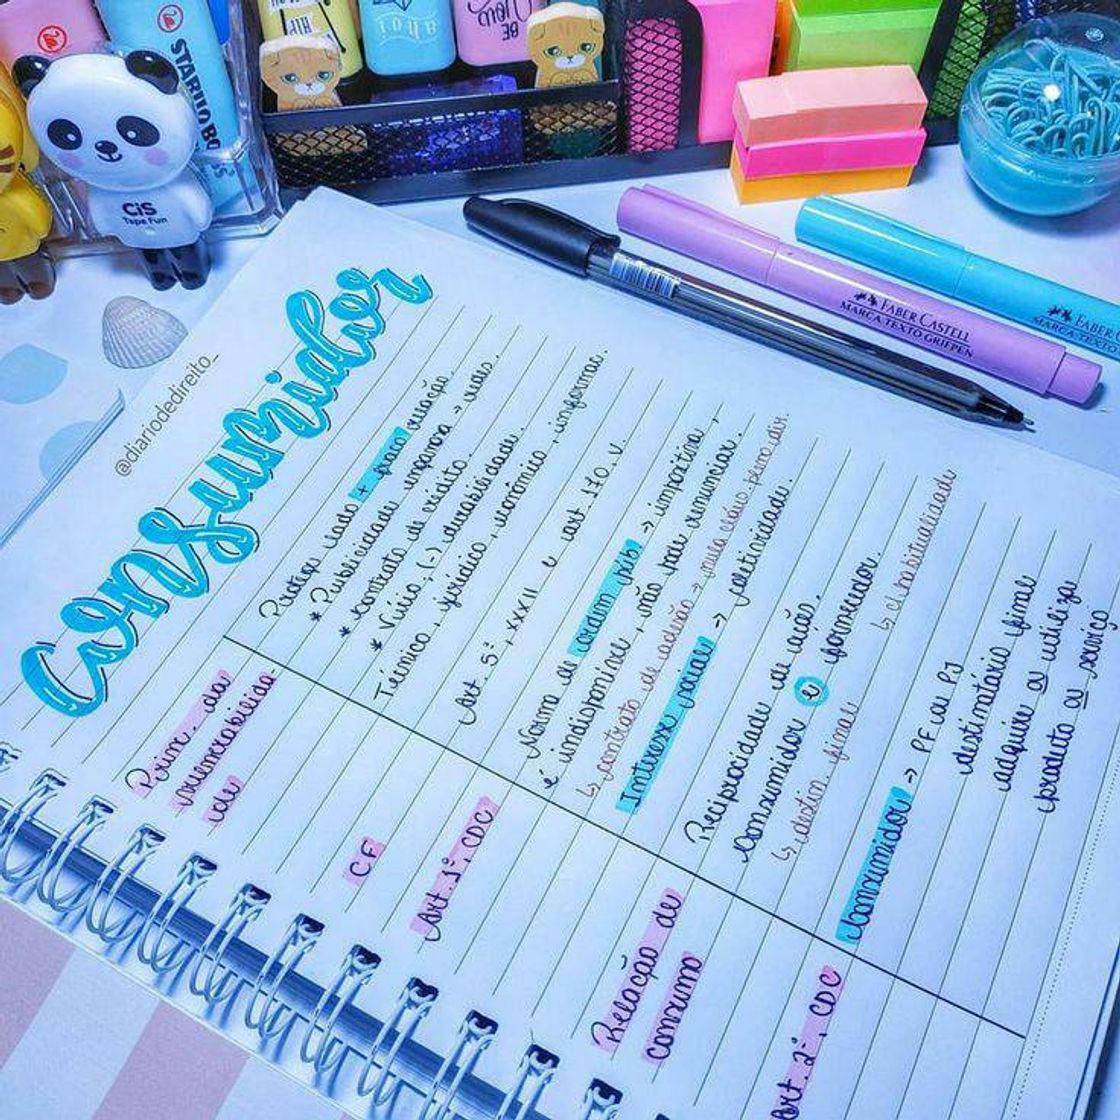 STABILO BO
ahoi
BE
CiS
Tape Fun
FABER CASTELL
MARCA TEXTO GRIFPEN
FABER C
MARCA TEXTO
@diariodedireito_
Consumidor
Prin. da
vulnerabilida
de
Protege lado + fraco relação.
* Publicidade enganosa →
* contrato de crédito.
* Vício, (-) durabilidade.
Técnico, jurídico, econômico, informac.
CF
Art. 5º, XXXII e art. 170, V.
Art. 1º, CDC
Norma de ordem púb → imperativa,
é indisponível, não pode renunciar.
↳ contrato de adesão →
Interesse social → coletividade.
Relação de
consumo
Reciprocidade de
Consumidor e fornecedor.
↳ destin. final ↳ c/ habitualidade
Art. 2º, CDC
Consumidor → PF ou PJ
destinatário final
adquire ou utiliza
produto ou serviço